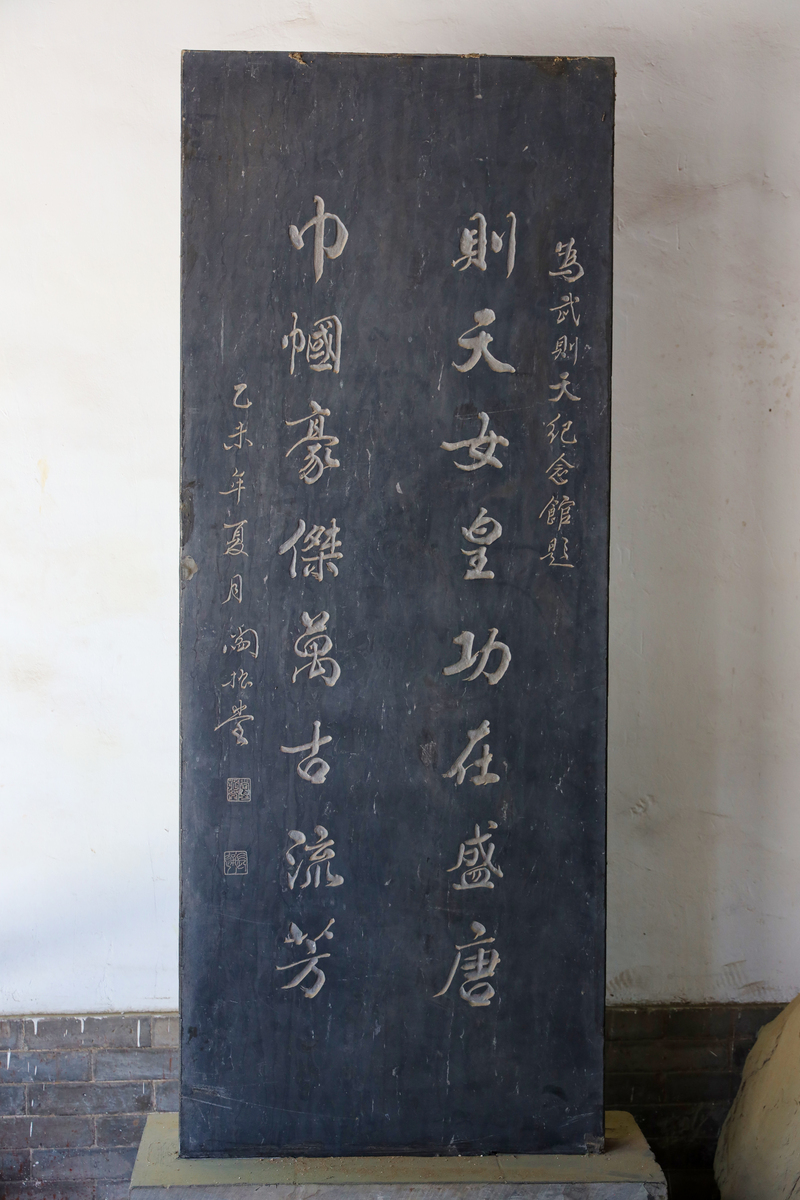 為武則天紀念館題
則天女皇功在盛唐
巾幗豪傑萬古流芳
乙未年夏月